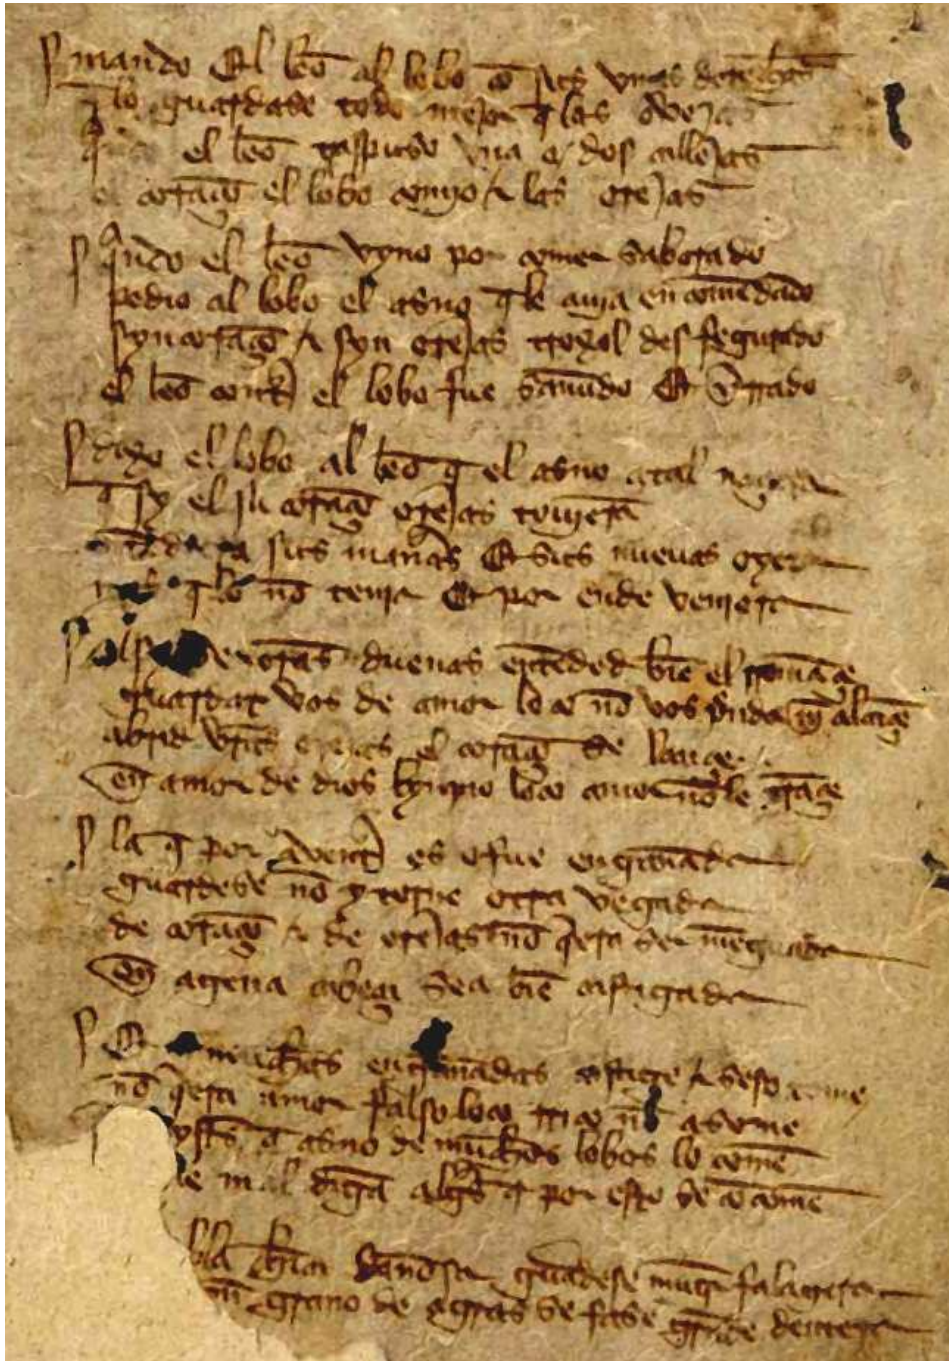 mando El leō al lobo cō sus vnas derechas
q̄ lo guardase todo mejor q̄ las ovejas
el leō traspuso vna o dos callejas
el coraçō el lobo comyo & las orejas
q̄ndo el leō vyno por comer saborado
pedio al lobo el asno q̄ le auja encomēdado
syn coraçō & syn orejas troxol desfegurado
el leō contrͣ el lobo fue sañudo Et yrado
dixo el lobo al leō q̄ el asno atal naçiera
q̄ sy el su coraçō orejas toujera
sus mañas Et sus nueuas oyera
q̄ lo nō tenja Et por ende venjera
asy señoras dueñas entēded biē el romāçe
guardat vos de amor loco nō vos prenda nj̄ alcāçe
abrid vr̄as orejas el coraçō se lançe
En amor de dios lynpio loco amor nōl le trāçe
la q̄ por avētͣ es o fue engañada
guardese nō y torne otra vegada
de coraçō & de orejas nō q̄era ser mēguada
En agena cabeça sea biē castigada
En muchas engañadas castigo & seso tome
nō q̄era amor falso loco rriso nō asome
oystes q̄ asno de muchos lobos lo comē
me maldigā algu͂s q̄ por esto se cōcomē
fabla chica dañosa guardese muger falagera
vn grano de agras se fase grāde dentera